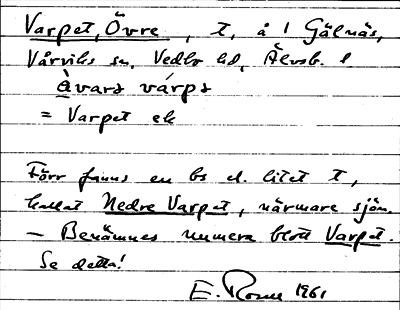 Varpet, Övre, t, å 1 Gälnäs,
Vårviks sn, Vedbo hd, Älvsb. l
Àvars várps
= Varpet ek
Förr fanns en bs el. litet t,
kallat Nedre Varpet, närmare sjön.
— Benämnes numera blott Varpet.
Se detta!
E. Rosell 1961